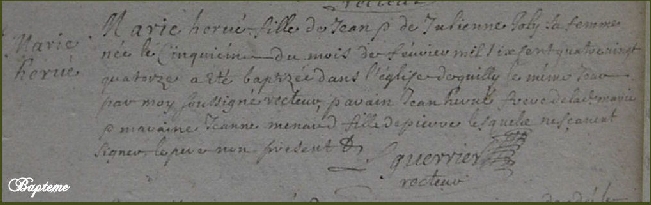 Marie hervé fille de Jean & de Julienne Goby sa femme
Marie
hervé
née le Cinquieme du mois de feuvrier mil six sent quatrevingt
quatorze a eté baptizée dans l'église de quilly le meme Jour
par moy soussigné recteur, parain Jean hervé frere de lad marie
& maraine Jeanne menard fille de pierre lesquels ne sçavent
signer, le pere non present &
guerrier
recteur
Bapteme